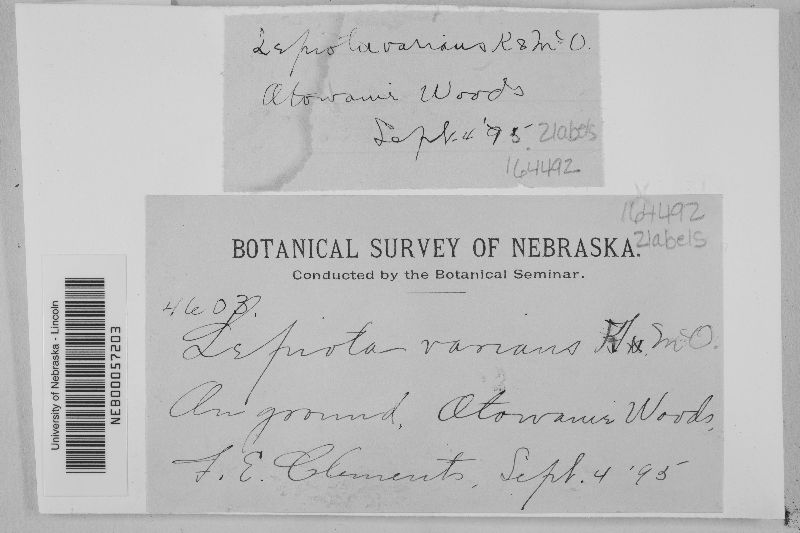 Lepiota varians K & McO.
Otowanie Woods
Sept. 4 '95. 2labels
164492
164492
2labels
BOTANICAL SURVEY OF NEBRASKA.
Conducted by the Botanical Seminar.
4603.
Lepiota varians K & McO.
On ground, Otowanie Woods,
F. E. Clements, Sept. 4 '95
University of Nebraska - Lincoln
NEB00057203